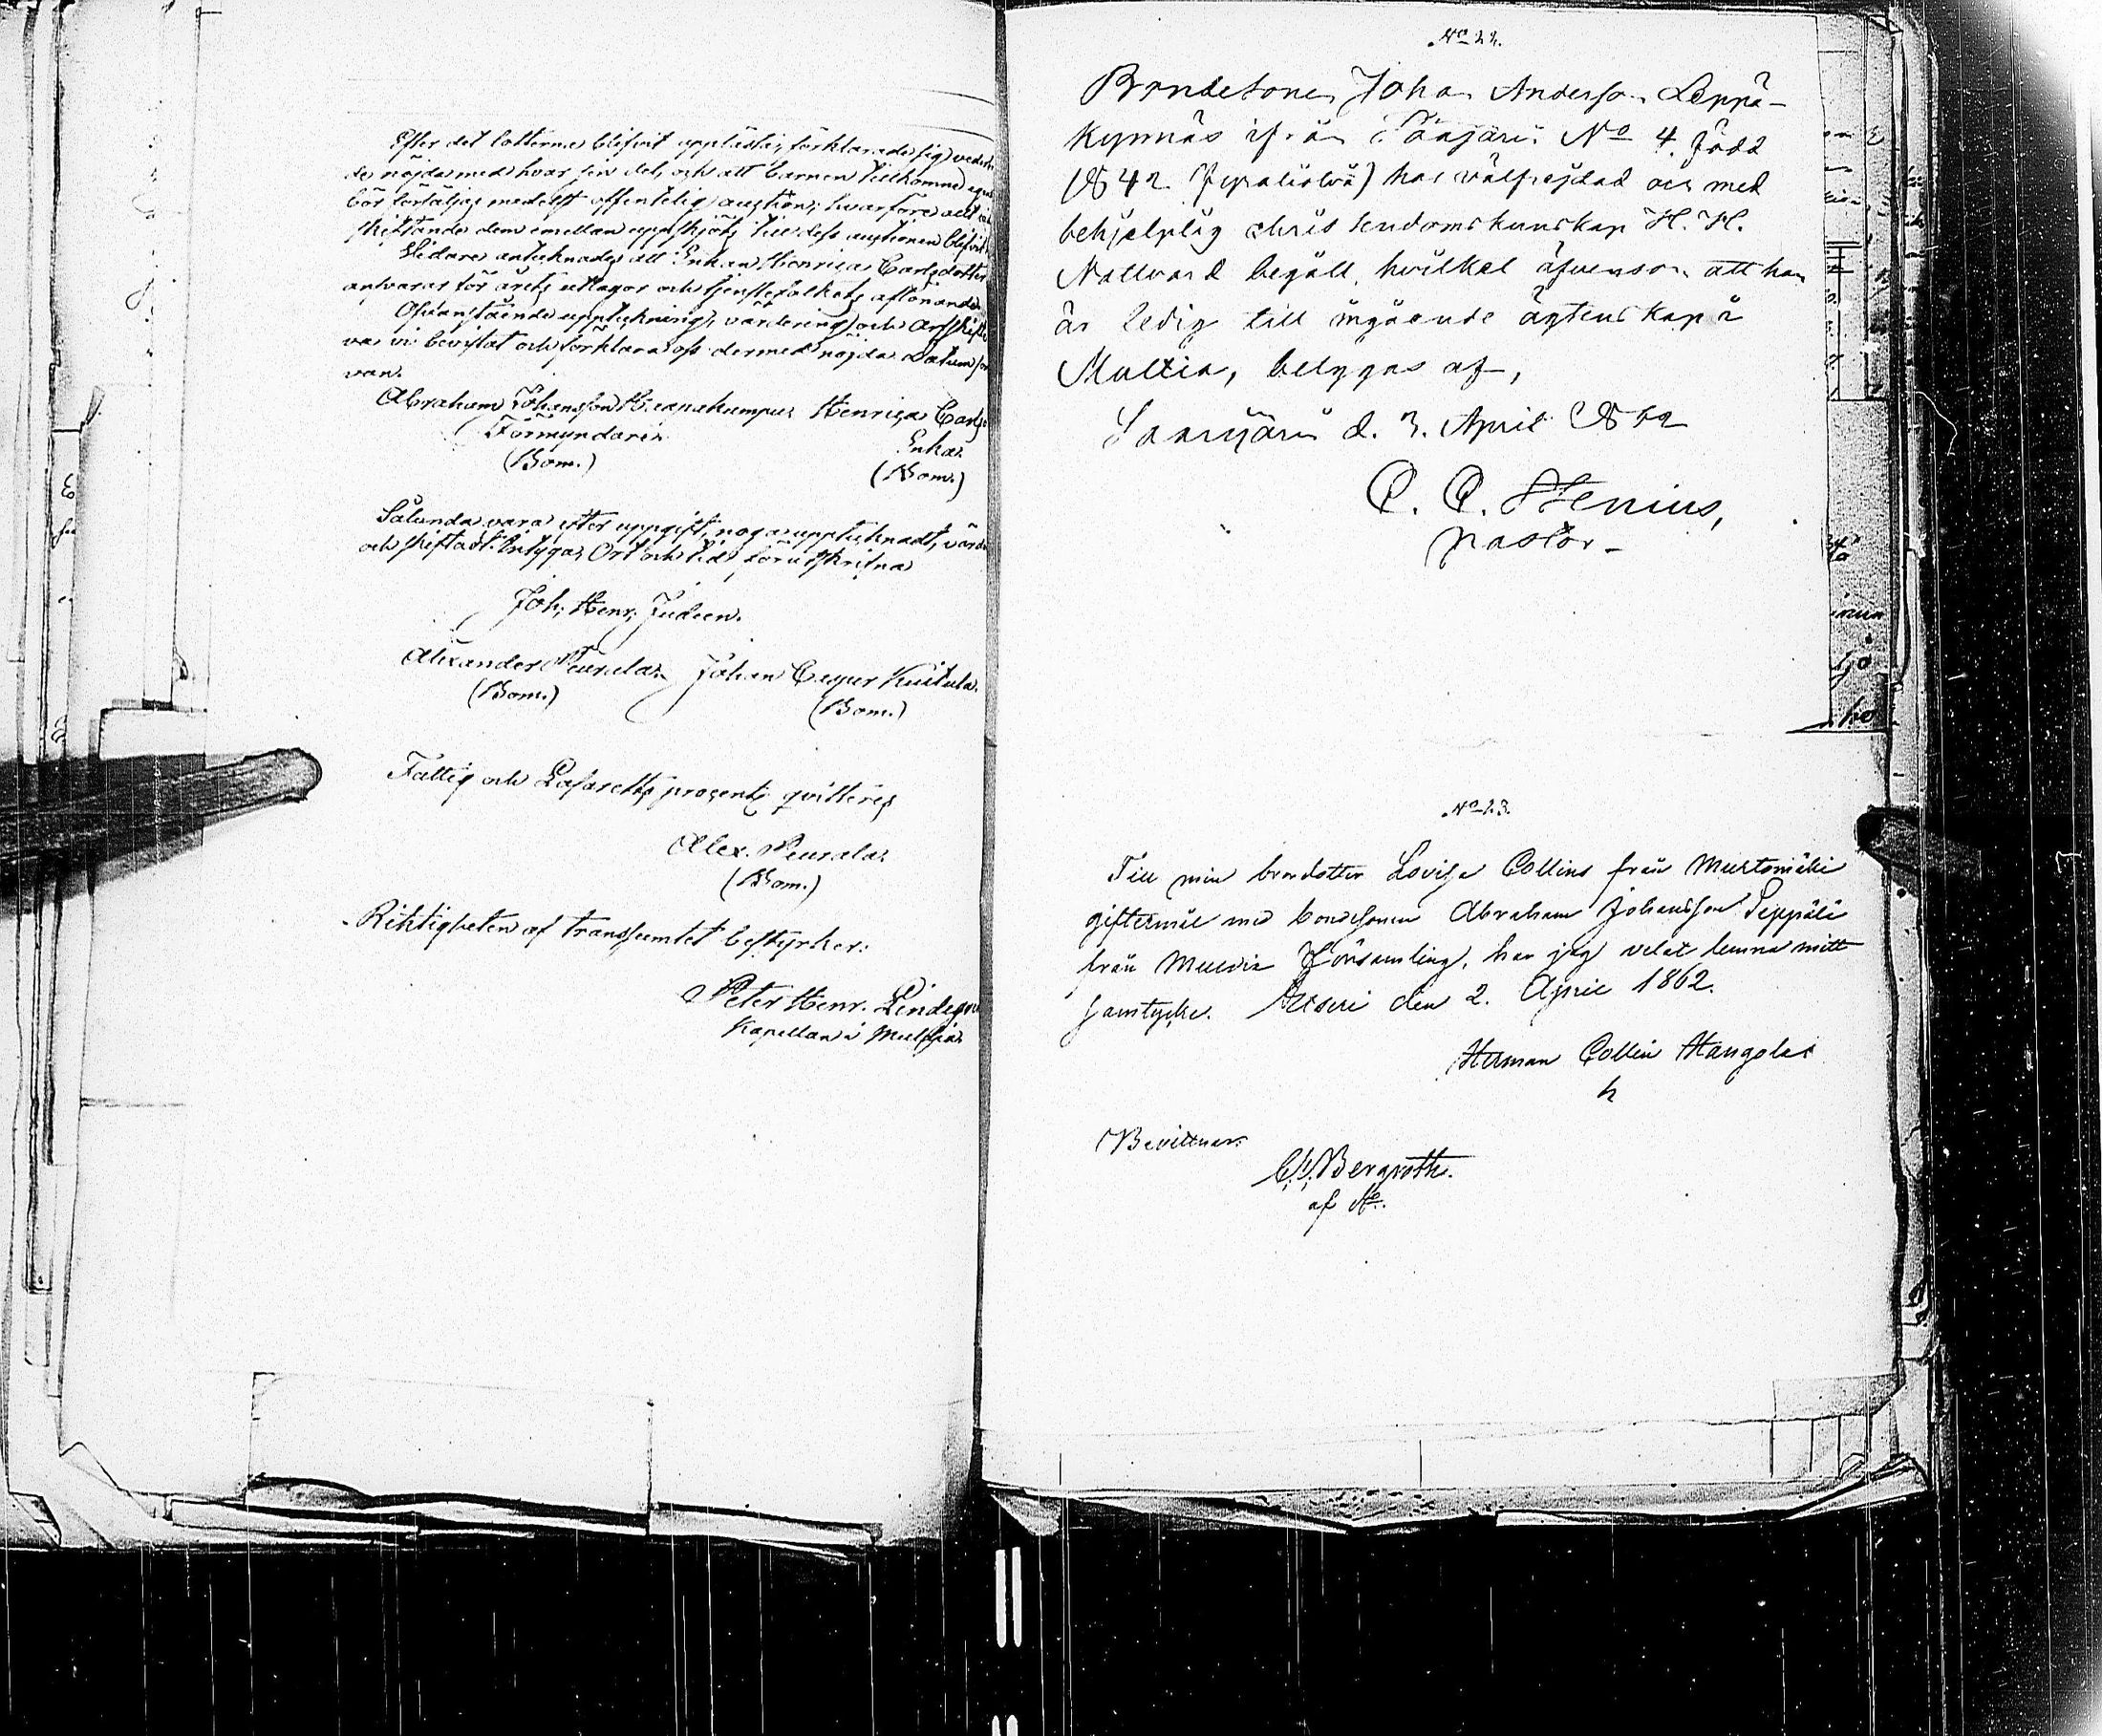 Efter det lotterne blifvit uppläste, förklarade sig vederbö
de nöjda med hvar sin del, och att barnen tillkomne egend
bör försäljas medelst offentelig auction; hvarföre allt
skiftande dem emellan uppskjöts till dess auctionen blifvit
Vidare antecknades att Enkan Henrica Carlsdotter
ansvarar för årets utlagor och tjenstefolkets aflönande
Ofvanstående uppteckning, värdering och arfskifte
va vi bevistat och förklara oss dermed nöjda Datum som
van.
Abraham Johansson Henrica Carls
Förmyndare Enka
(Bom.) (Bom.)
Sålunda vara efter uppgift, noga upptecknadt, värde
och skiftadt. Intygar Ort och tid förutskrifna
Joh; Henr; Judeen.
Alexander Peurala Johan Casper Kuitula
(Bom.) (Bom.)
Fattig och Lasaretts procent qvitteras
Alex. Peurala
(Bom.)
Riktigheten af transsumtet bestyrker:
Peter Henr. Lindegr
Kapellan i Multia
No 22.
Bondesonen Johan Andersson Leppä-
kynnäs ifrån Saarijärvi No 4. född
1842 har välfrejdad och med
behjelplig christendomskunskap H. H.
Nattvard begått, hvilket äfvensom att han
är ledig till ingående ägtenskap i
Multia, betygas af,
Saarijärvi d. 3. April 1862
C. C. Stenius,
pastor-
No 23.
Till min brorsdotter Lovisa Collins från Murtomäki
giftermål med bondesonen Abraham Johansson Seppälä
från Multia Församling, har jag velat lemna mitt
samtycke. Etseri den 2. April 1862.
Herman Collin Hangolas
h
Bevittnar:
Bergroth.
af No.